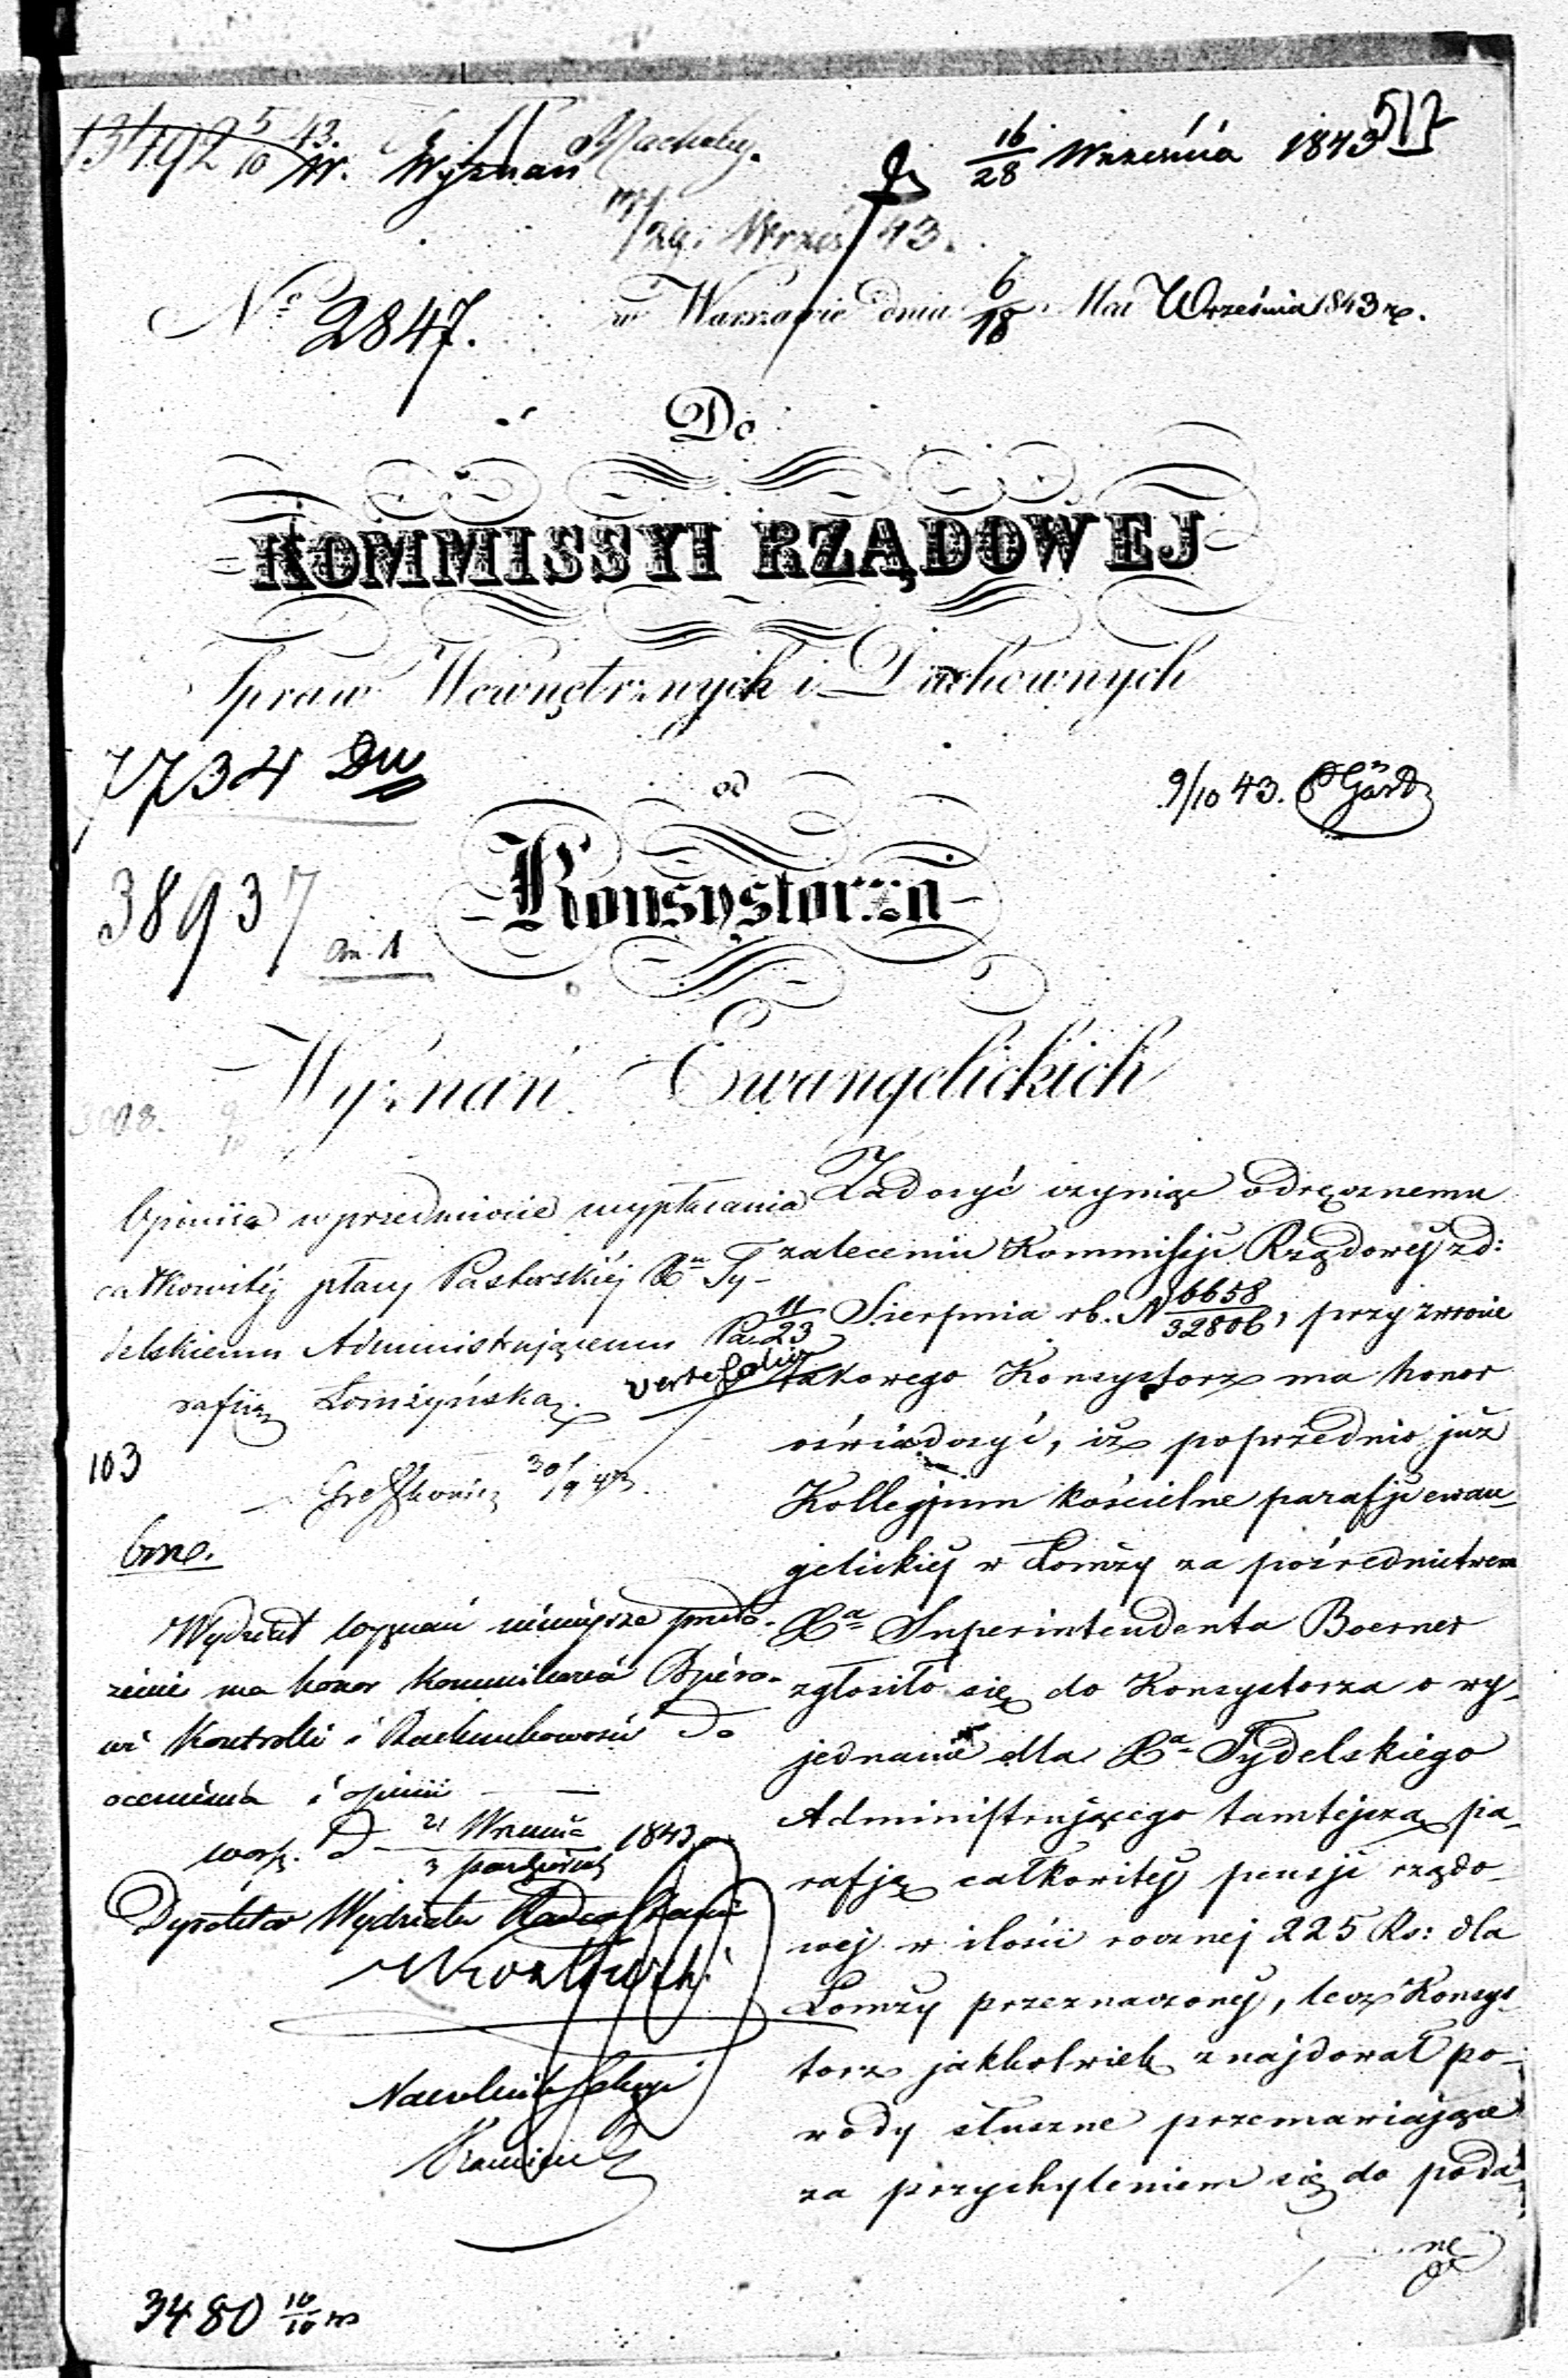 13492 5/10 43.
W. Wyznań
16/28 Września 1843
517
29 Wrześ 43.
No 2847.
w Warszawie dnia 6/18 Mca Września 1843 r.
Do
KOMMISSYI RZĄDOWEJ
Spraw Wewnętrznych i Duchownych
7734 Dw
9/10 43.
od
38937
Konsystorza
Wyznań Ewangelickich
Opiniia w przedmiocie wypłacania
całkowitéj płacy Pasterskiéj Xu Ty-
delskiemu Administrującemu Pa-
rafiią Łomżyńską.
verte folium
103
30/9 43.
Wydział Wyznań niniejsze przeło-
żenie ma honor kommunikować Biuro-
wi Kontrolli i Rachunkowości do
ocenienia i opinii
Warsz. d. 21 Września / 3 październ 1843
Dyrektor Wydziału Radca Stanu
Naczelnik Sekcyi
3480 10/10
Zadosyć czyniąc odręcznemu
zaleceniu Kommissji Rządowej z d:
11/23 Sierpnia rb. N 6658/32806, przy zwrocie
takowego Konsystorz ma honor
oświadczyć, iż poprzednio już
Kollegjum kościelne parafji ewan-
gelickiej w Łomży za pośrednictwem
Xa Superintendenta Boerner
zgłosiło się do Konsystorza o wy-
jednanie dla Xa Tydelskiego
Administrującego tamtejszą pa-
rafją całkowitej pensji rządo-
wej w ilości rocznej 225 Rs: dla
Łomży przeznaczonej, lecz Konsys-
torz jakkolwiek znajdował po-
wody słuszne przemawiające
za przychyleniem się do poda-
ne